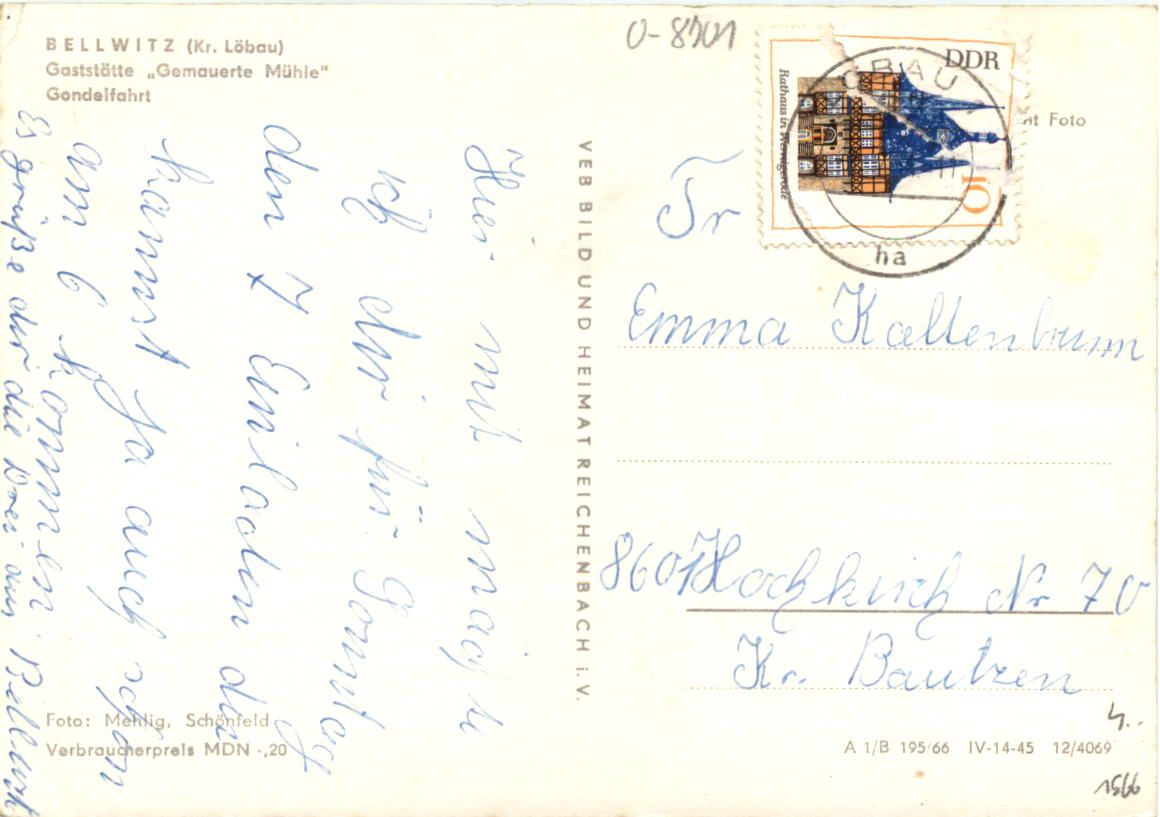 BELLWITZ (Kr. Löbau)
Gaststätte „Gemauerte Mühle"
Gondelfahrt
Hier mit möchte
ich dir für Sonntag
den 7 Einladen du
kannst Ja auch schon
am 6 kommen.
Es grüße dir die Drei aus Bellwitz
Foto: Mehlig, Schönfeld
Verbraucherpreis MDN -,20
VEB BILD UND HEIMAT REICHENBACH i. V.
O-8701
DDR
Rathaus in Wernigerode
10
ÖBAU
ha
Foto
Fr
Emma Kaltenbrunn
8601 Hochkirch Nr 70
Kr. Bautzen
A 1/B 195/66 IV-14-45 12/4069
4..
1566